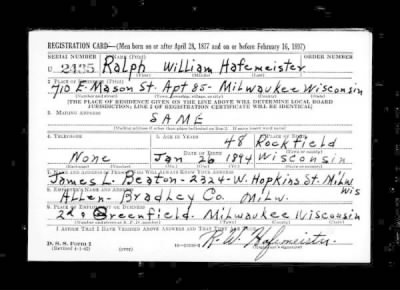 REGISTRATION CARD—(Men born on or after April 28, 1877 and on or before February 16, 1897)
SERIAL NUMBER 1. NAME (Print) ORDER NUMBER
U 2435 Ralph William Hafemeister
(First) (Middle) (Last)
2. PLACE OF RESIDENCE (Print)
710 E. Mason St. Apt 85- Milwaukee Wisconsin
(Number and street) (Town, township, village, or city) (County) (State)
[THE PLACE OF RESIDENCE GIVEN ON THE LINE ABOVE WILL DETERMINE LOCAL BOARD
JURISDICTION; LINE 2 OF REGISTRATION CERTIFICATE WILL BE IDENTICAL]
3. MAILING ADDRESS
SAME
[Mailing address if other than place indicated on line 2. If same insert word same]
4. TELEPHONE 5. AGE IN YEARS 6. PLACE OF BIRTH
48 Rockfield
DATE OF BIRTH (Town or county)
None Jan 26 1894 Wisconsin
7. NAME AND ADDRESS OF PERSON WHO WILL ALWAYS KNOW YOUR ADDRESS
James L. Beaton - 2324-W. Hopkins St. Milw. Wis
8. EMPLOYER'S NAME AND ADDRESS
Allen-Bradley Co. Milw.
9. PLACE OF EMPLOYMENT OR BUSINESS
2nd & Greenfield. Milwaukee Wisconsin
I AFFIRM THAT I HAVE VERIFIED ABOVE ANSWERS AND THAT THEY ARE TRUE.
D. S. S. Form 1
(Revised 4-1-42) (over)
R. W. Hafemeister.